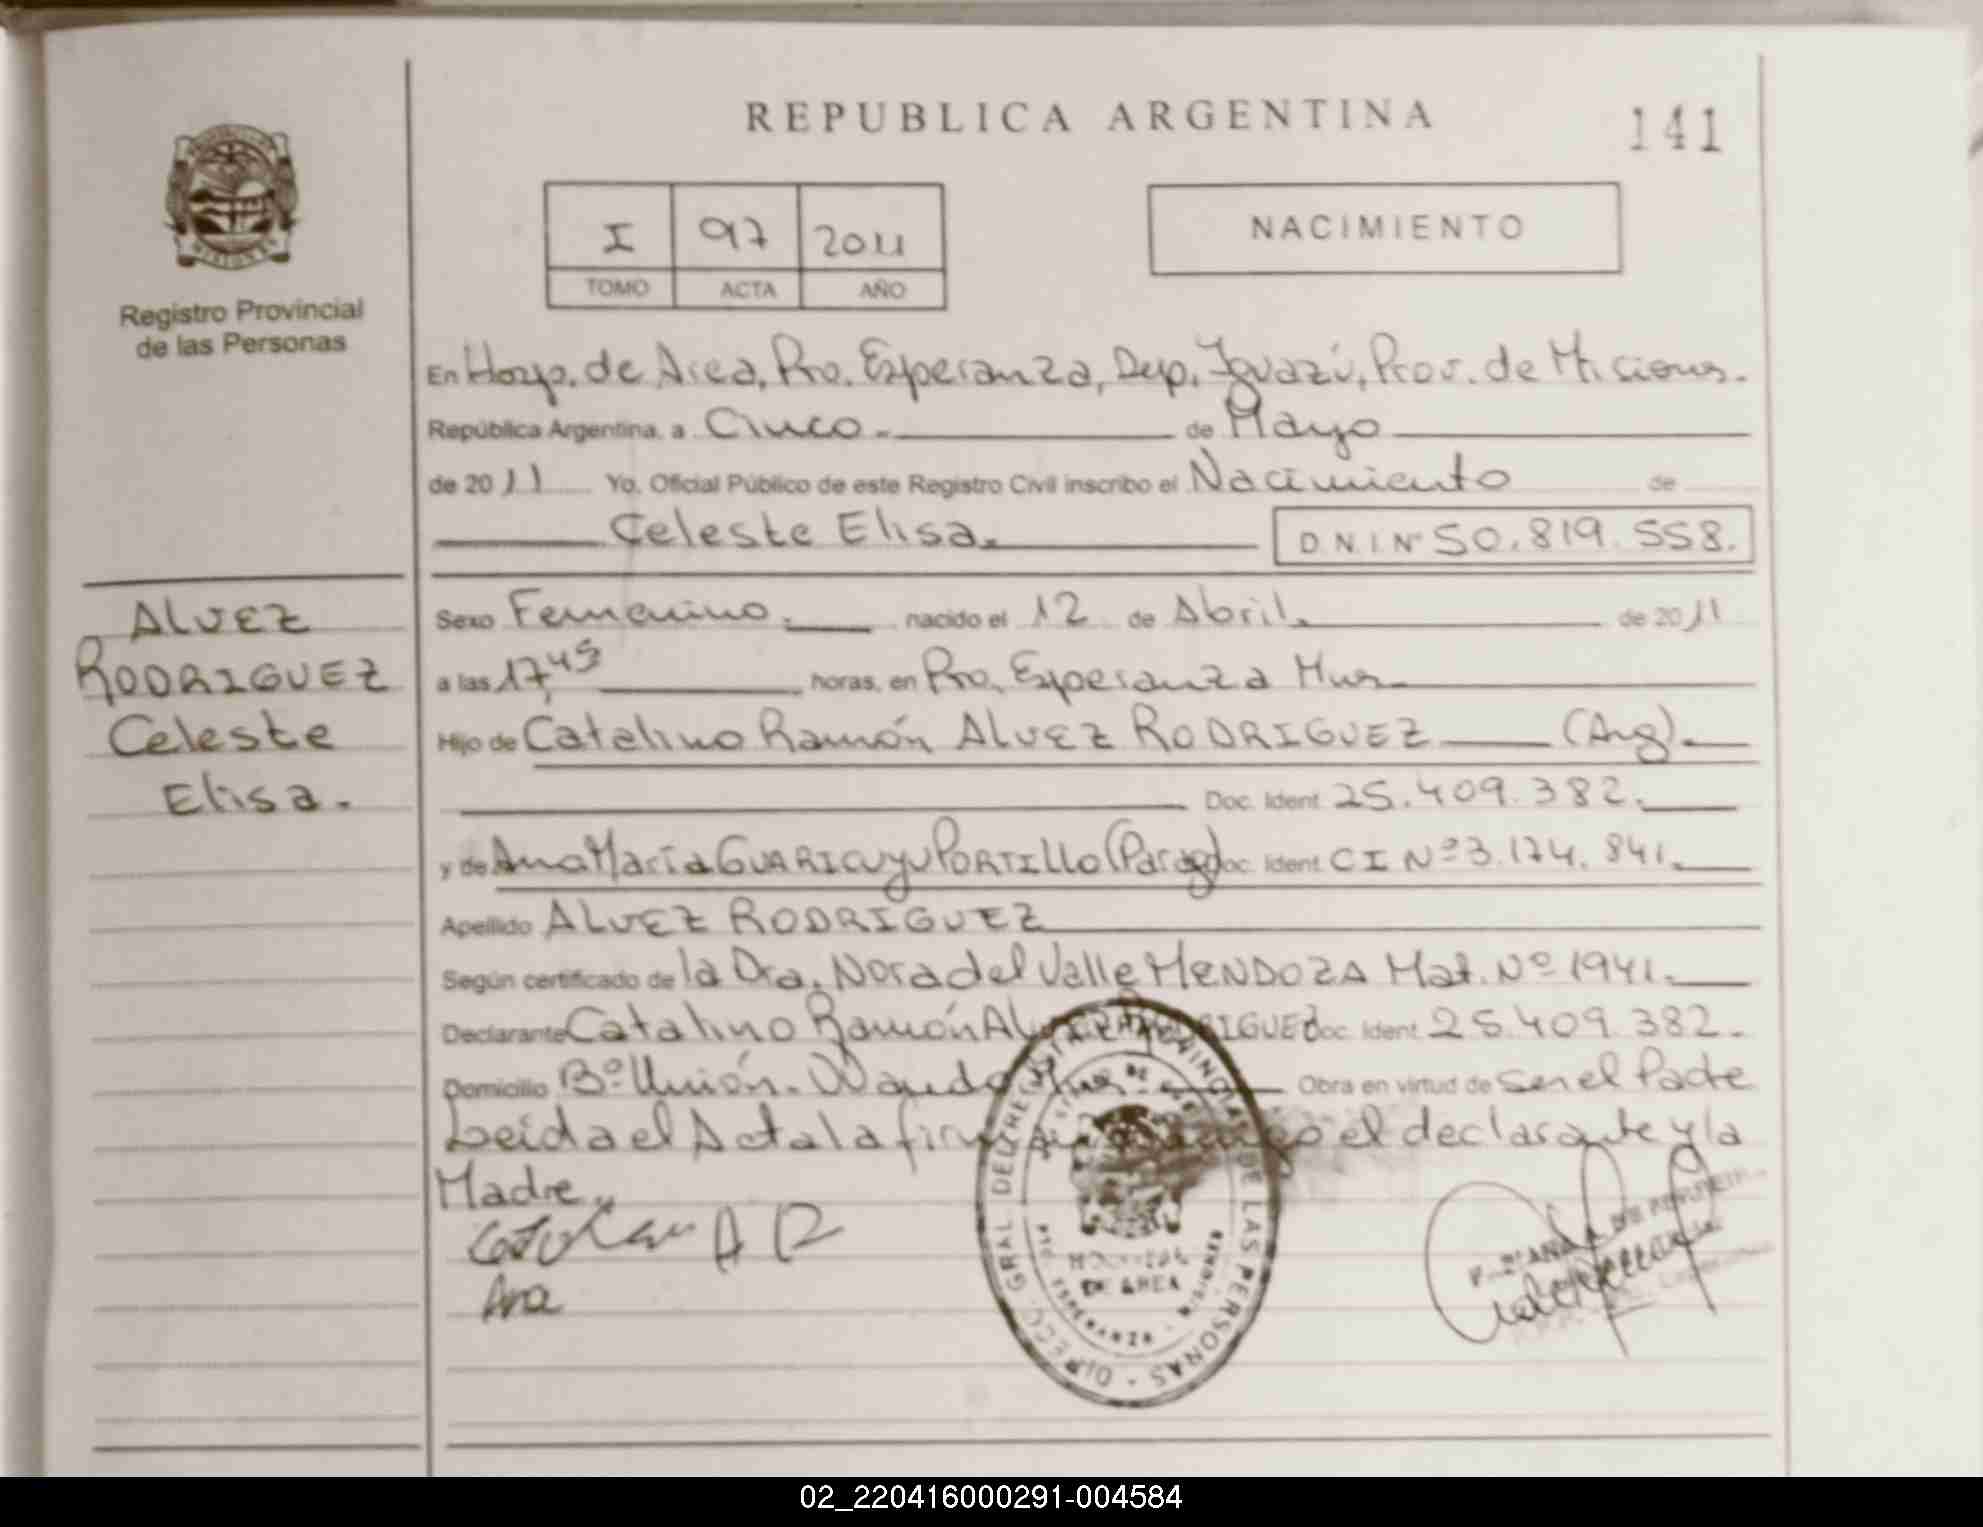 REPUBLICA ARGENTINA
141
I 97 2011
TOMO ACTA AÑO
NACIMIENTO
MISIONES
Registro Provincial
de las Personas
En Hosp. de Area, Pto. Esperanza, Dep. Iguazú, Prov. de Misiones.
República Argentina, a Cinco.- de Mayo
de 2011 Yo, Oficial Público de este Registro Civil inscribo el Nacimiento de
Celeste Elisa.
D.N.I. Nº 50.819.558.
ALVEZ
RODRIGUEZ
Celeste
Elisa.
Sexo Femenino. nacido el 12 de Abril. de 2011
a las 17,45 horas, en Pto. Esperanza Mnes.
Hijo de Catalino Ramón ALVEZ RODRIGUEZ (Arg).
Doc. Ident. 25.409.382.
y de Ana María GUARICUYU PORTILLO (Parag) Doc. Ident. CI Nº 3.174.841.
Apellido ALVEZ RODRIGUEZ
Según certificado de la Dra. Nora del Valle MENDOZA Mat. Nº 1941.
Declarante Catalino Ramón ALVEZ RODRIGUEZ Doc. Ident. 25.409.382.
Domicilio Bº Unión. Wanda Mnes Obra en virtud de ser el Padre
Leida el Acta la firman el declarante y la
Madre.
A R
Ana
DIRECC. GRAL. DEL REGISTRO PROVINCIAL DE LAS PERSONAS
HOSPITAL
DE AREA
02_220416000291-004584